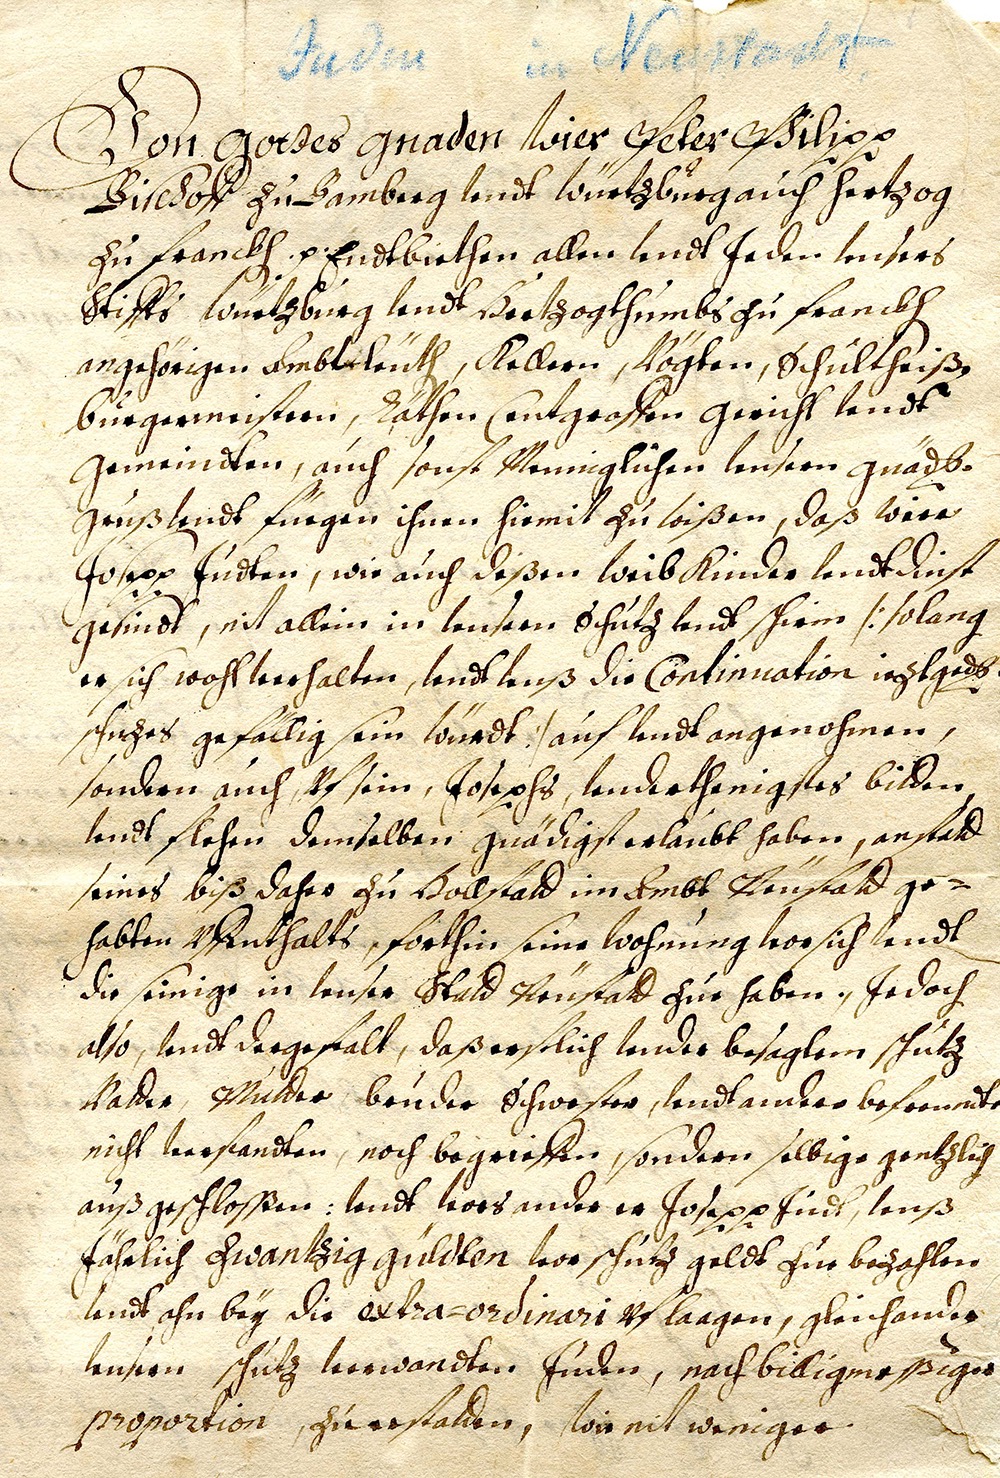 Juden in Neustadt
Von Gottes gnaden Wier Peter Philipp
Bischoff zu Bamberg vndt Würtzburg auch Hertzog
zu Franckh. p. Endtbiethen allen vndt Jeden vnsers
Stiffts Würtzburg vndt Hertzogthumbs zu Franckh
angehörigen Ambtleüth, Kellern, Vögten, Schultheiß,
burgermeistern, Räthen, Centgraffen Gericht vndt
Gemeindten, auch sonst Menniglichen vnsern gnädg.
gruß vndt füegen ihnen hiemit zu wißen, daß wier
Josepp Judten, wie auch deßen Weib Kinder vndt dinst
gesindt, nit allein in vnsern Schutz vndt schirm /: solang
er sich wohl verhalten, vndt vnß die Continuation
schuzes gefällig sein würdt :/ auf vndt angenohmen,
sondern auch, vf sein, Josephs, vnderthenigstes bitten,
vndt flehen demselben gnädigst erlaubt haben, anstatt
seines biß daher zu Hollstatt im Ambt Neustatt ge=
habten Vffenthalts, forthin seine Wohnung vor sich vndt
die seinige in vnser Statt Neustatt zue haben., Jedoch
also, vndt dergestalt, daß erstlich vnder besagtem schutz
Vatter, Mutter, bruder Schwester, vndt andere befreundte
nicht verstandten, noch begrieffen, sondern selbige gentzlich
außgeschlossen: vndt vors ander er Josepp Judt, vnß
Jährlich zwantzig güldten vor schutz geldt zue bezahlen
vndt ahn bey die extra=ordinari vflaagen, gleich ander
vnsern schutz verwandten Juden, nach billigmeßiger
proportion, zu erstatten, wie nit weniger